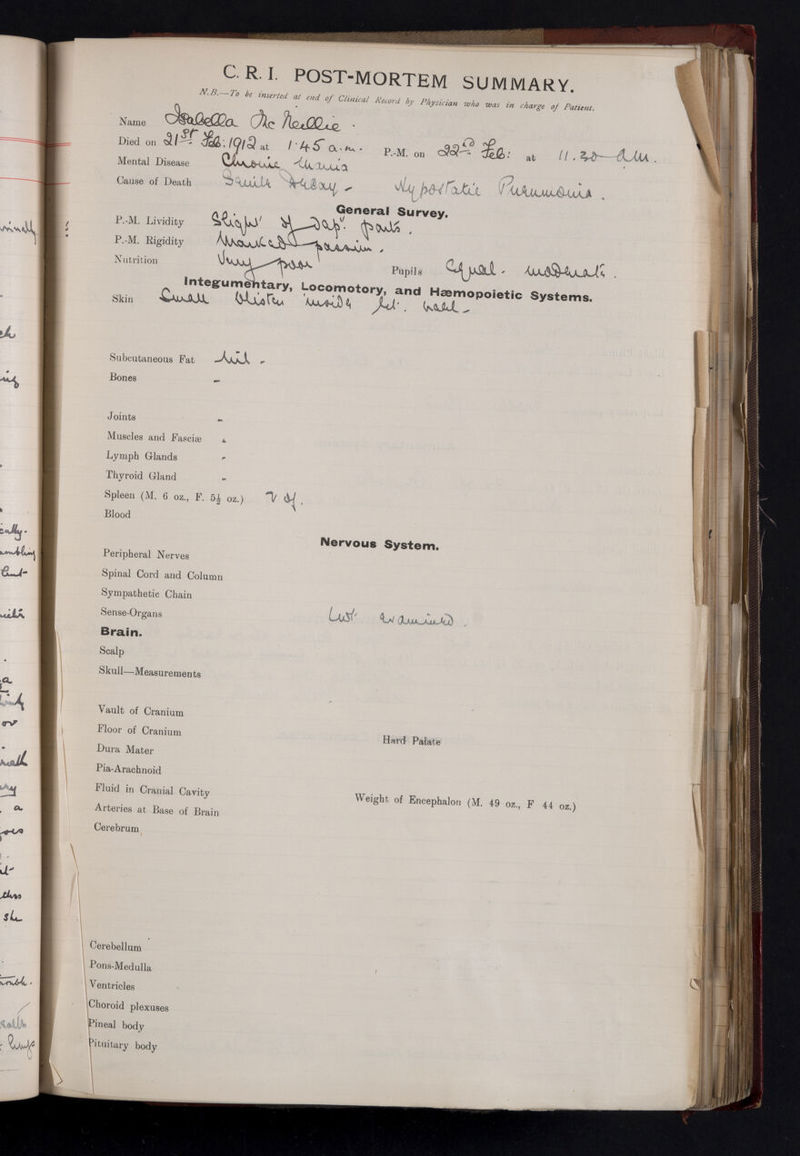 C. R. I. POST-MORTEM SUMMARY.
N.B.—To be inserted at end of Clinical Record by Physician who was in charge of Patient.
Name Isabella Mc Neillie.
Died on 21st Feb: 1912 at 1.45 a.m. P.-M. on 22nd Feb: at 11.30 a.m.
Mental Disease Chronic Mania
Cause of Death Senile Decay - Hypostatic Pneumonia.
General Survey.
P.-M. Lividity Slight of dep. parts.
P.-M. Rigidity Marked passim.
Nutrition Very poor Pupils Equal - moderate.
Integumentary, Locomotory, and Hæmopoietic Systems.
Skin Small blister inside heel -
Subcutaneous Fat Nil -
Bones -
Joints -
Muscles and Fasciæ -
Lymph Glands -
Thyroid Gland -
Spleen (M. 6 oz., F. 5½ oz.)
Blood
Nervous System.
Peripheral Nerves
Spinal Cord and Column
Sympathetic Chain
Sense-Organs Not examined.
Brain.
Scalp
Skull—Measurements
Vault of Cranium
Floor of Cranium Hard Palate
Dura Mater
Pia-Arachnoid
Fluid in Cranial Cavity Weight of Encephalon (M. 49 oz., F 44 oz.)
Arteries at Base of Brain
Cerebrum
Cerebellum
Pons-Medulla
Ventricles
Choroid plexuses
Pineal body
Pituitary body